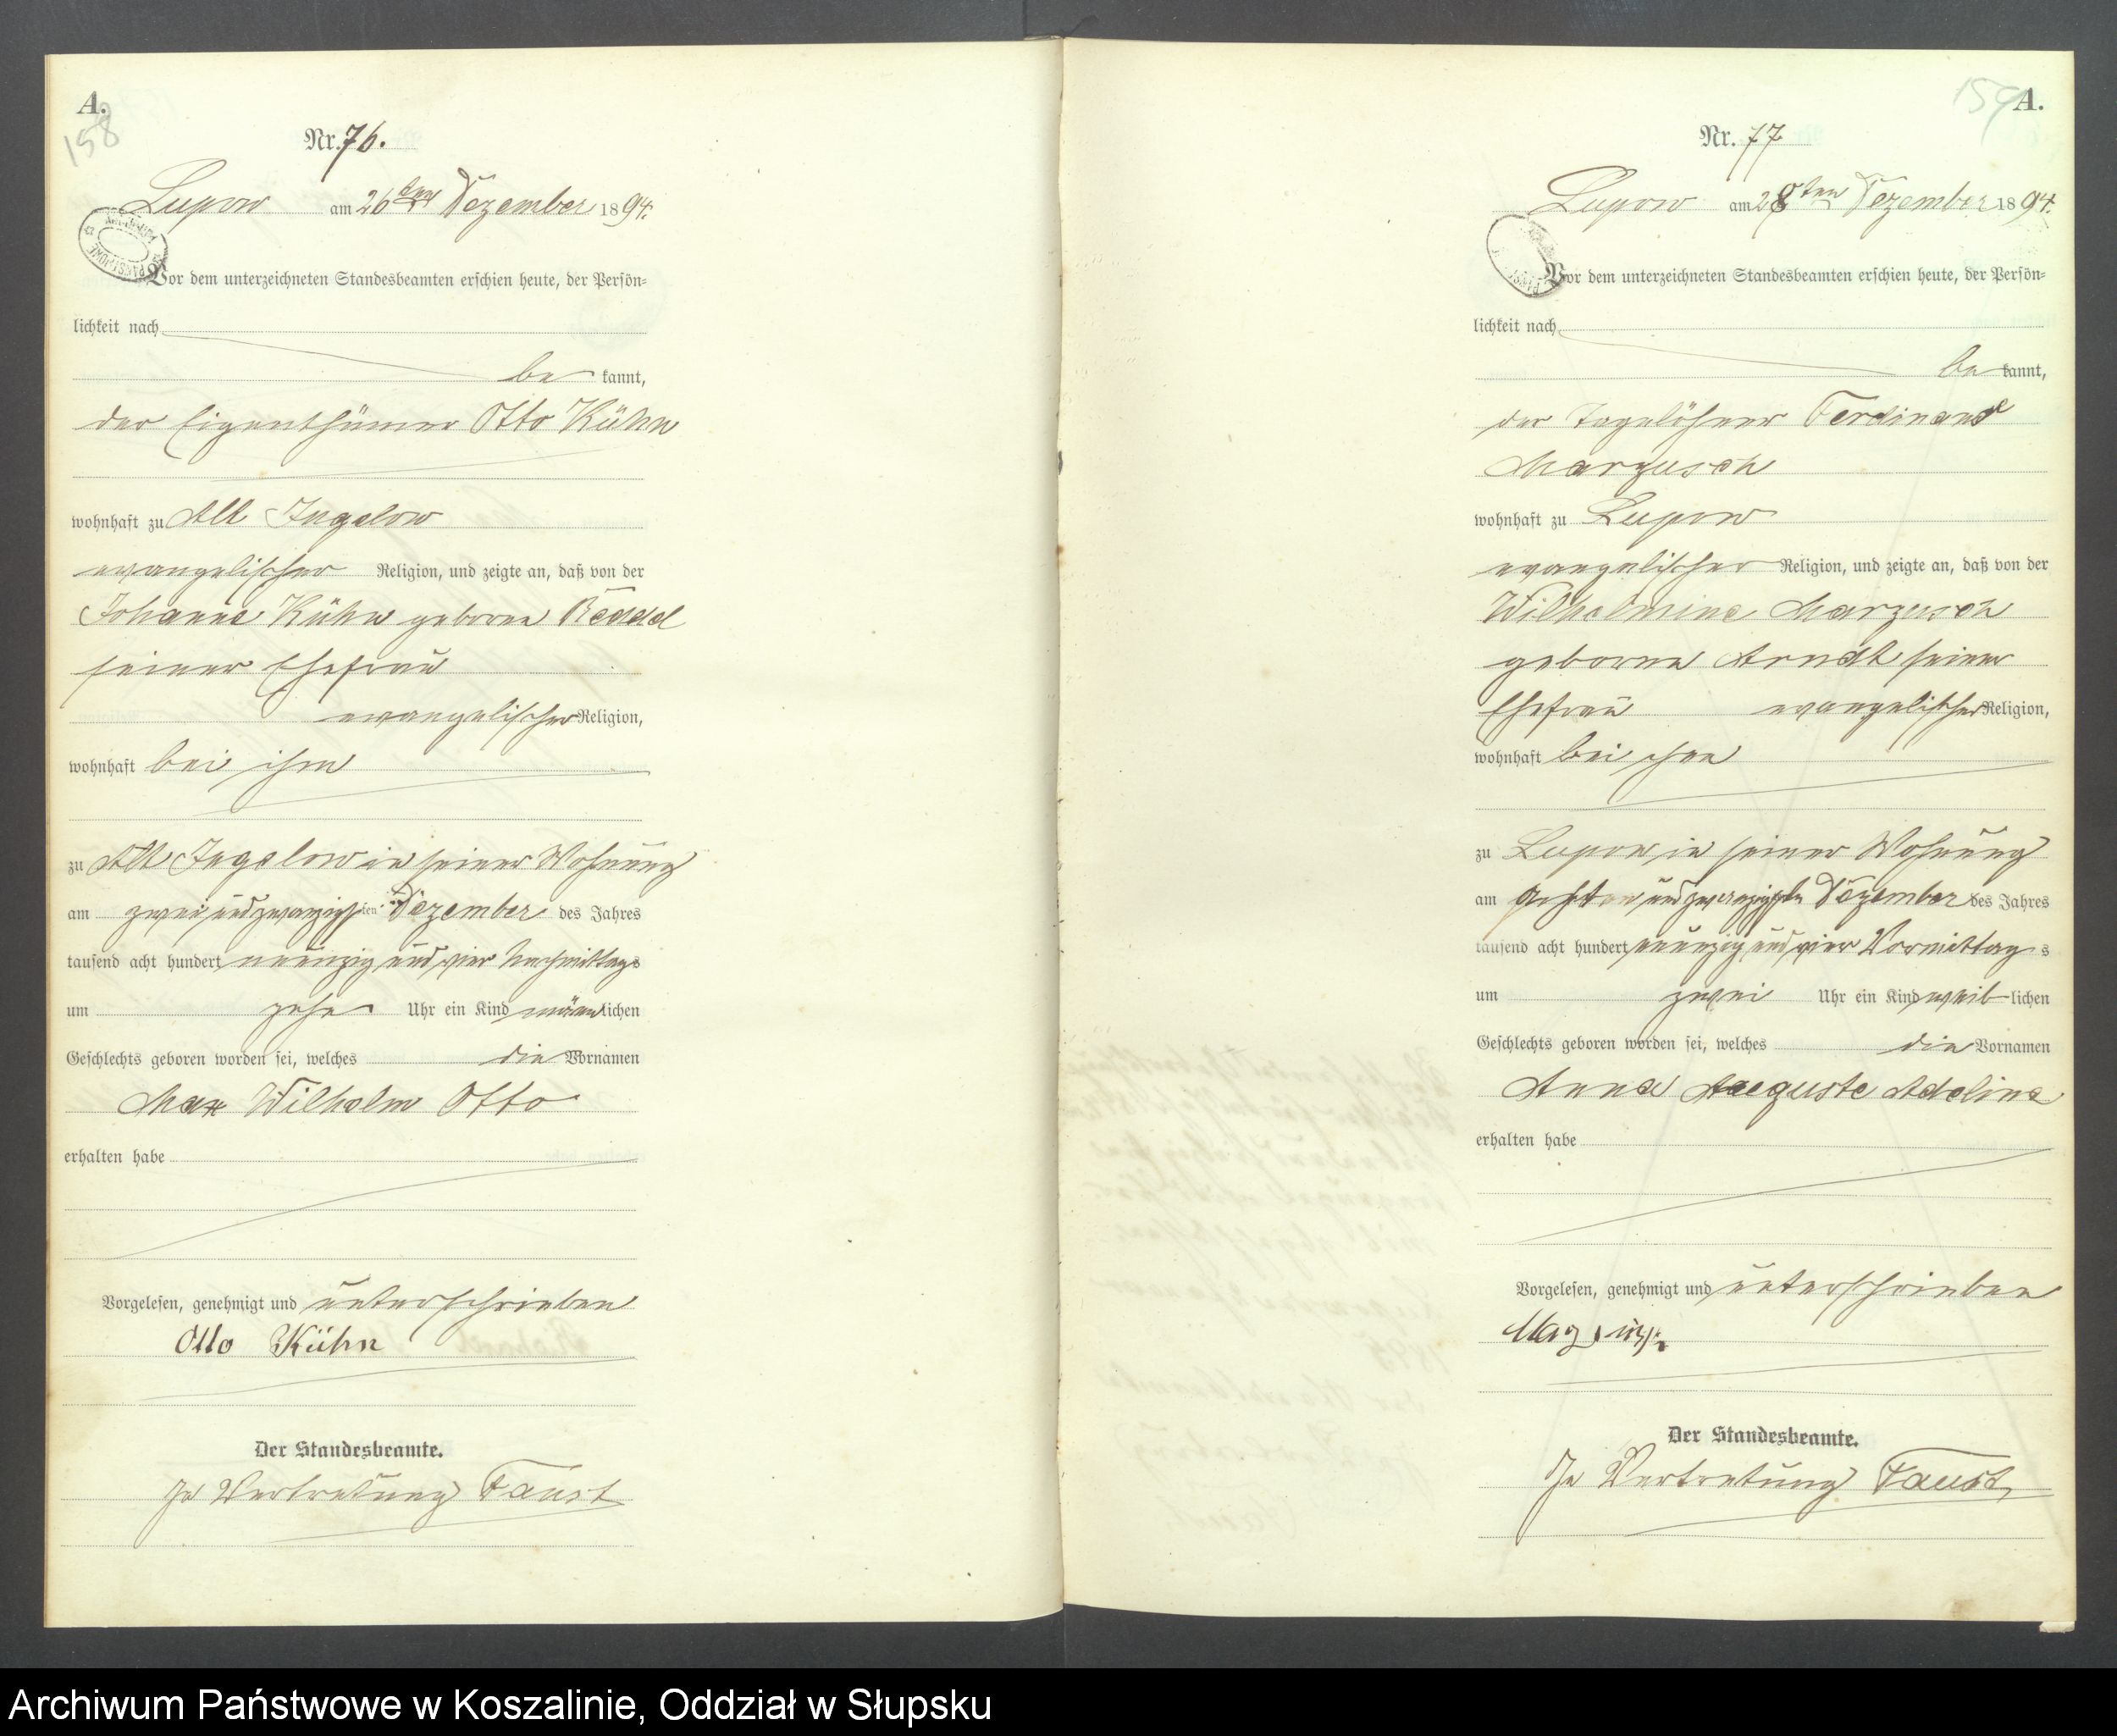 A.
158
Nr. 76.
Lupow am 26ten Dezember 1894.
Vor dem unterzeichneten Standesbeamten erschien heute, der Persön=
lichkeit nach
be kannt,
der Eigenthümer Otto Kühn
wohnhaft zu Alt Jugelow
evangelischer Religion, und zeigte an, daß von der
Johanne Kühn geborne
seiner Ehefrau
evangelischer Religion,
wohnhaft bei ihm
zu Alt Jugelow in seiner Wohnung
am zwei und zwanzigsten Dezember des Jahres
tausend acht hundert neunzig und vier Nachmittags
um zehn Uhr ein Kind männlichen
Geschlechts geboren worden sei, welches die Vornamen
Max Wilhelm Otto
erhalten habe
Vorgelesen, genehmigt und unterschrieben
Otto Kühn
Der Standesbeamte.
In Vertretung Faust
159
A.
Nr. 77
Lupow am 28ten Dezember 1894.
Vor dem unterzeichneten Standesbeamten erschien heute, der Persön=
lichkeit nach
be kannt,
der Tagelöhner Ferdinand
Marzusch
wohnhaft zu Lupow
evangelischer Religion, und zeigte an, daß von der
Wilhelmine Marzusch
geborne Arndt seiner
Ehefrau evangelischer Religion,
wohnhaft bei ihm
zu Lupow in seiner Wohnung
am achten und zwanzigsten Dezember des Jahres
tausend acht hundert neunzig und vier Vormittags
um zwei Uhr ein Kind weiblichen
Geschlechts geboren worden sei, welches die Vornamen
Anna Auguste Adeline
erhalten habe
Vorgelesen, genehmigt und unterschrieben
Der Standesbeamte.
In Vertretung Faust
Archiwum Państwowe w Koszalinie, Oddział w Słupsku